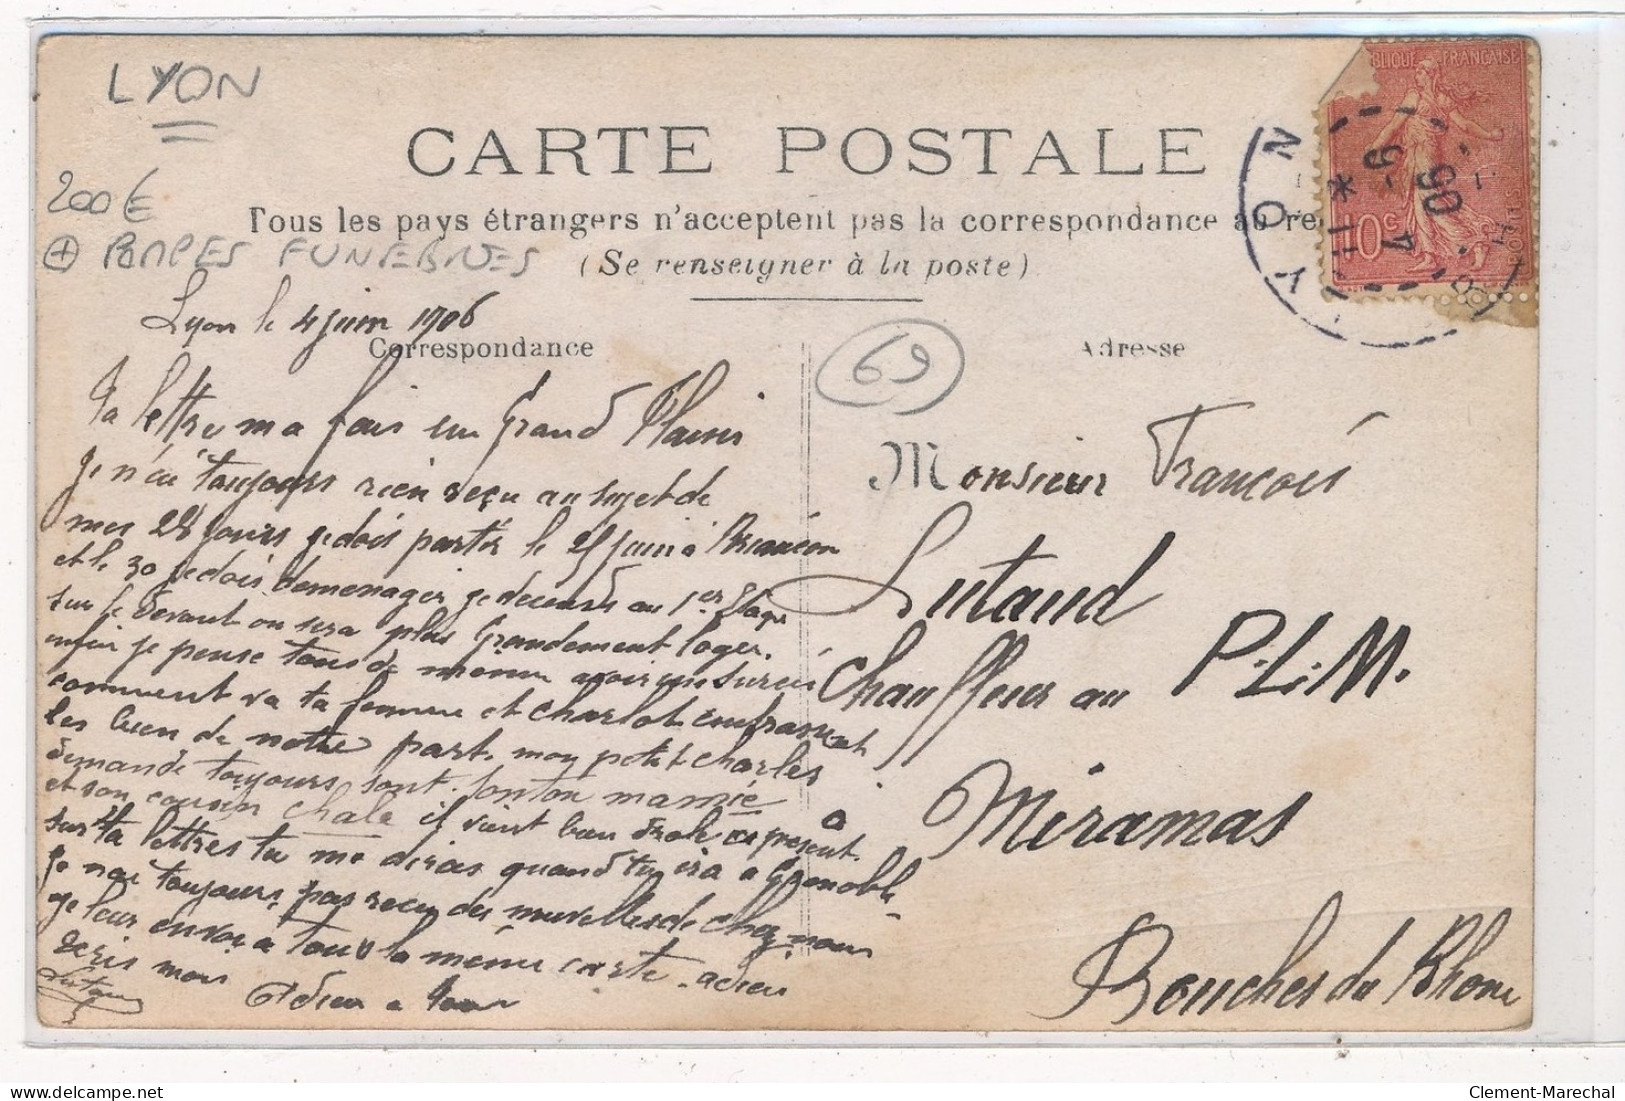 LYON
200€
+ POMPES FUNEBRES
CARTE POSTALE
Tous les pays étrangers n'acceptent pas la correspondance au re
(Se renseigner à la poste)
Lyon le 4 juin 1906
Correspondance
69
Adresse
RÉPUBLIQUE FRANÇAISE
POSTES
10c
LYON
Ta lettre ma fais un Grand Plaisir
je n'ai toujours rien reçu au sujet de
mes 28 jours je dois partir le 25 juin a Briançon
et le 30 je dois demenager je decends au 1er Etage
sur le devant on sera plus Grandement loger.
enfin je pense tous de meme avoir un sursis
comment va ta femme et Charlot embrasse
les bien de notre part. mon petit Charles
demande toujours sont tonton mamie
et son cousin Chala il vient bien drole a present.
sur ta lettres tu me diras quand tu ira a Grenoble
je nai toujours pas recu des nouvelles de chez nous
je leur envoi a tous la même carte. adieu
ecris moi Adieu a tous
Lutaud
Monsieur François
Lutaud
Chauffeur au P.L.M.
à
Miramas
Bouches du Rhone
Clement-Marechal